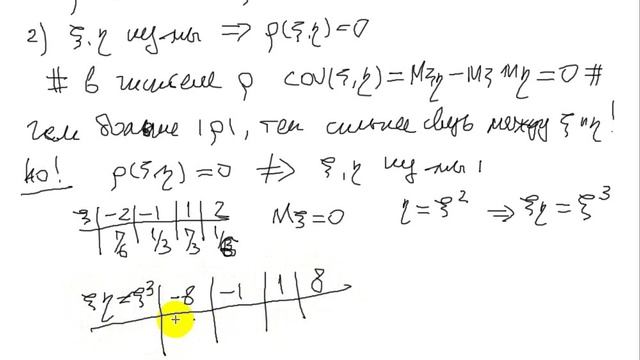 2) ξ, η нез-мы ⇒ ρ(ξ,η)=0
# в числителе ρ cov(ξ,η)=Mξη−MξMη=0 #
чем больше |ρ|, тем сильнее связь между ξ и η!
но! ρ(ξ,η)=0 ⇏ ξ, η нез-мы!
ξ | −2 | −1 | 1 | 2 Mξ=0 η=ξ² ⇒ ξη=ξ³
1/3 1/3
ξη=ξ³ | −8 | −1 | 1 | 8